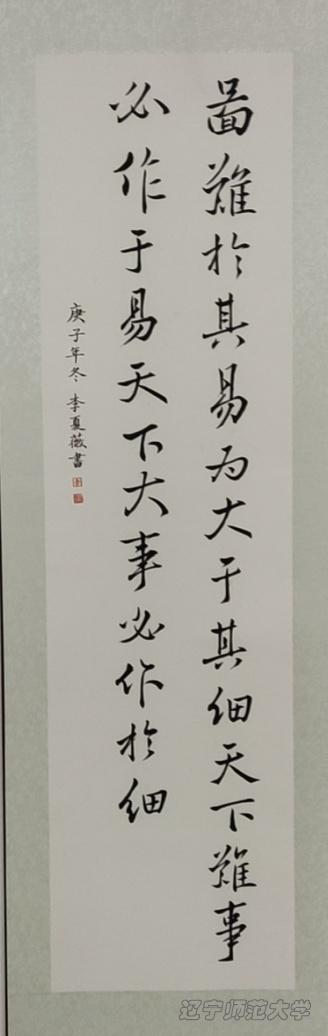 啚難於其易为大于其细天下難事
必作于易天下大事必作於细
庚子年冬 李夏薇書
辽宁师范大学